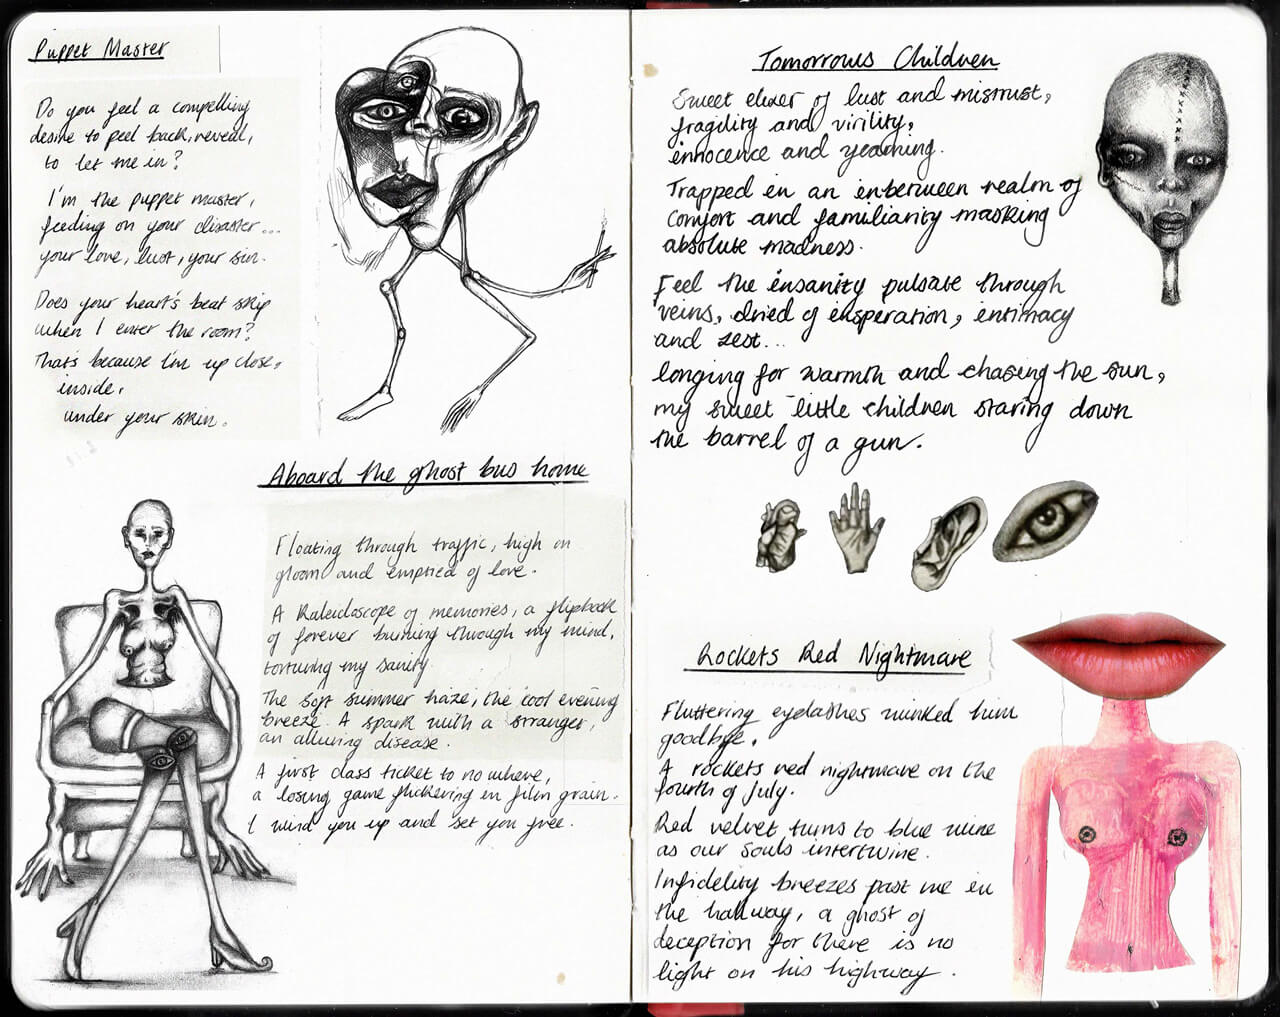 Puppet Master
Do you feel a compelling
desire to peel back, reveal,
to let me in?
I'm the puppet master,
feeding on your disaster...
your love, lust, your sin.
Does your heart's beat skip
when I enter the room?
That's because I'm up close,
inside,
under your skin.
Aboard the ghost bus home
Floating through traffic, high on
gloom and emptied of love.
A Kaleidoscope of memories, a flipbook
of forever burning through my mind,
torturing my sanity
The soft summer haze, the cool evening
breeze. A spark with a stranger,
an alluring disease.
A first class ticket to no where,
a losing game flickering in film grain.
I wind you up and set you free.
Tomorrows Children
Sweet elixer of lust and mistrust,
fragility and virility,
innocence and yearning.
Trapped in an inbetween realm of
comfort and familiarity masking
absolute madness.
Feel the insanity pulsate through
veins, dried of insperation, intimacy
and zest...
longing for warmth and chasing the sun,
my sweet little children staring down
the barrel of a gun.
Rockets Red Nightmare
Fluttering eyelashes winked him
goodbye.
A rockets red nightmare on the
fourth of July.
Red velvet turns to blue wine
as our souls intertwine.
Infidelity breezes past me in
the hallway, a ghost of
deception for there is no
light on his highway.